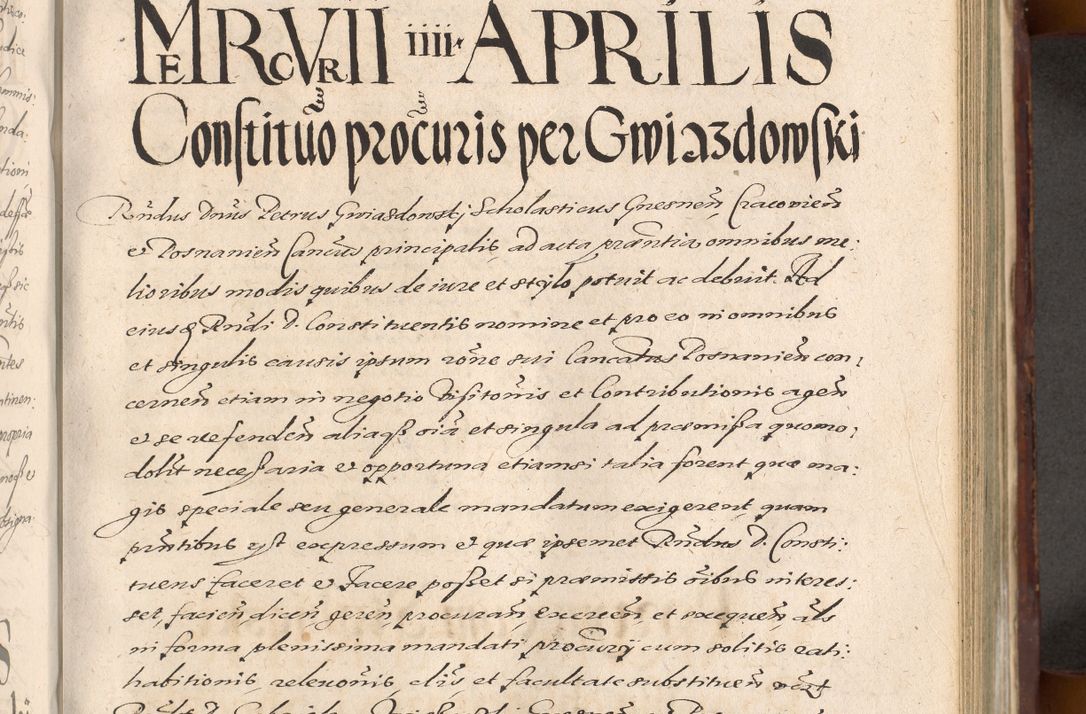 MERCVRII iiii APRILIS
Constituo procuris per Gwiazdowski
Rndus Dnus Petrus Gwiazdowskj Scholasticus Gnesnen, Cracovien
et Posnanien Cancus principalis, ad acta prantia omnibus me:
lioribus modis quibus de iure et stylo potuit ac debuit. Ad
eiusq Rndi D. Constituentis nomine et pro eo in omnibus
et singulis causis ipsum rone sui Cancatus Posnanien con,
cernen etiam in negotio Visitonis et Contributionis agen
et se defenden aliaqs oia et singula ad præmissa quomo,
dolit necessaria et opportuna etiamsi talia forent quæ ma:
gis speciale seu generale mandatum exigerent quam
prntibus est expressum et quæ ipsemet Rndus D. Consti:
tuens faceret et facere posset si præmistis oibus interes:
set, facien dicen geren, procuran, exercen, et exequen als
in forma plenissima mandati procurij cum solitis rati:
habitionis, relevonis, clis, et facultate substituen